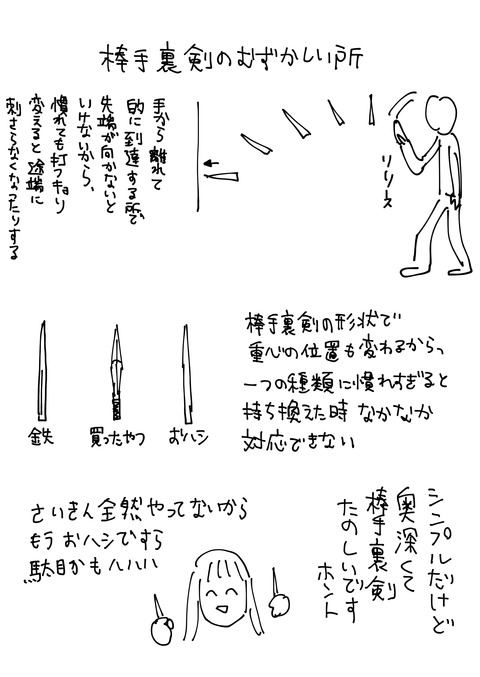 棒手裏剣のむずかしい所
リリース
手から離れて
的に到達する所で
先端が向かないと
いけないから、
慣れても打つキョリ
変えると途端に
刺さらなくなったりする
棒手裏剣の形状で
重心の位置も変わるから、
一つの種類に慣れすぎると
持ち換えた時 なかなか
対応できない
鉄
買ったやつ
おハシ
シンプルだけど
奥深くて
棒手裏剣
たのしいです
ホント
さいきん全然やってないから
もう おハシですら
駄目かもハハハ